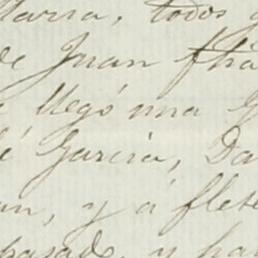 Maria, todos
de Juan
llegó una
é Garcia, Da
y á flete
pasado, y pa